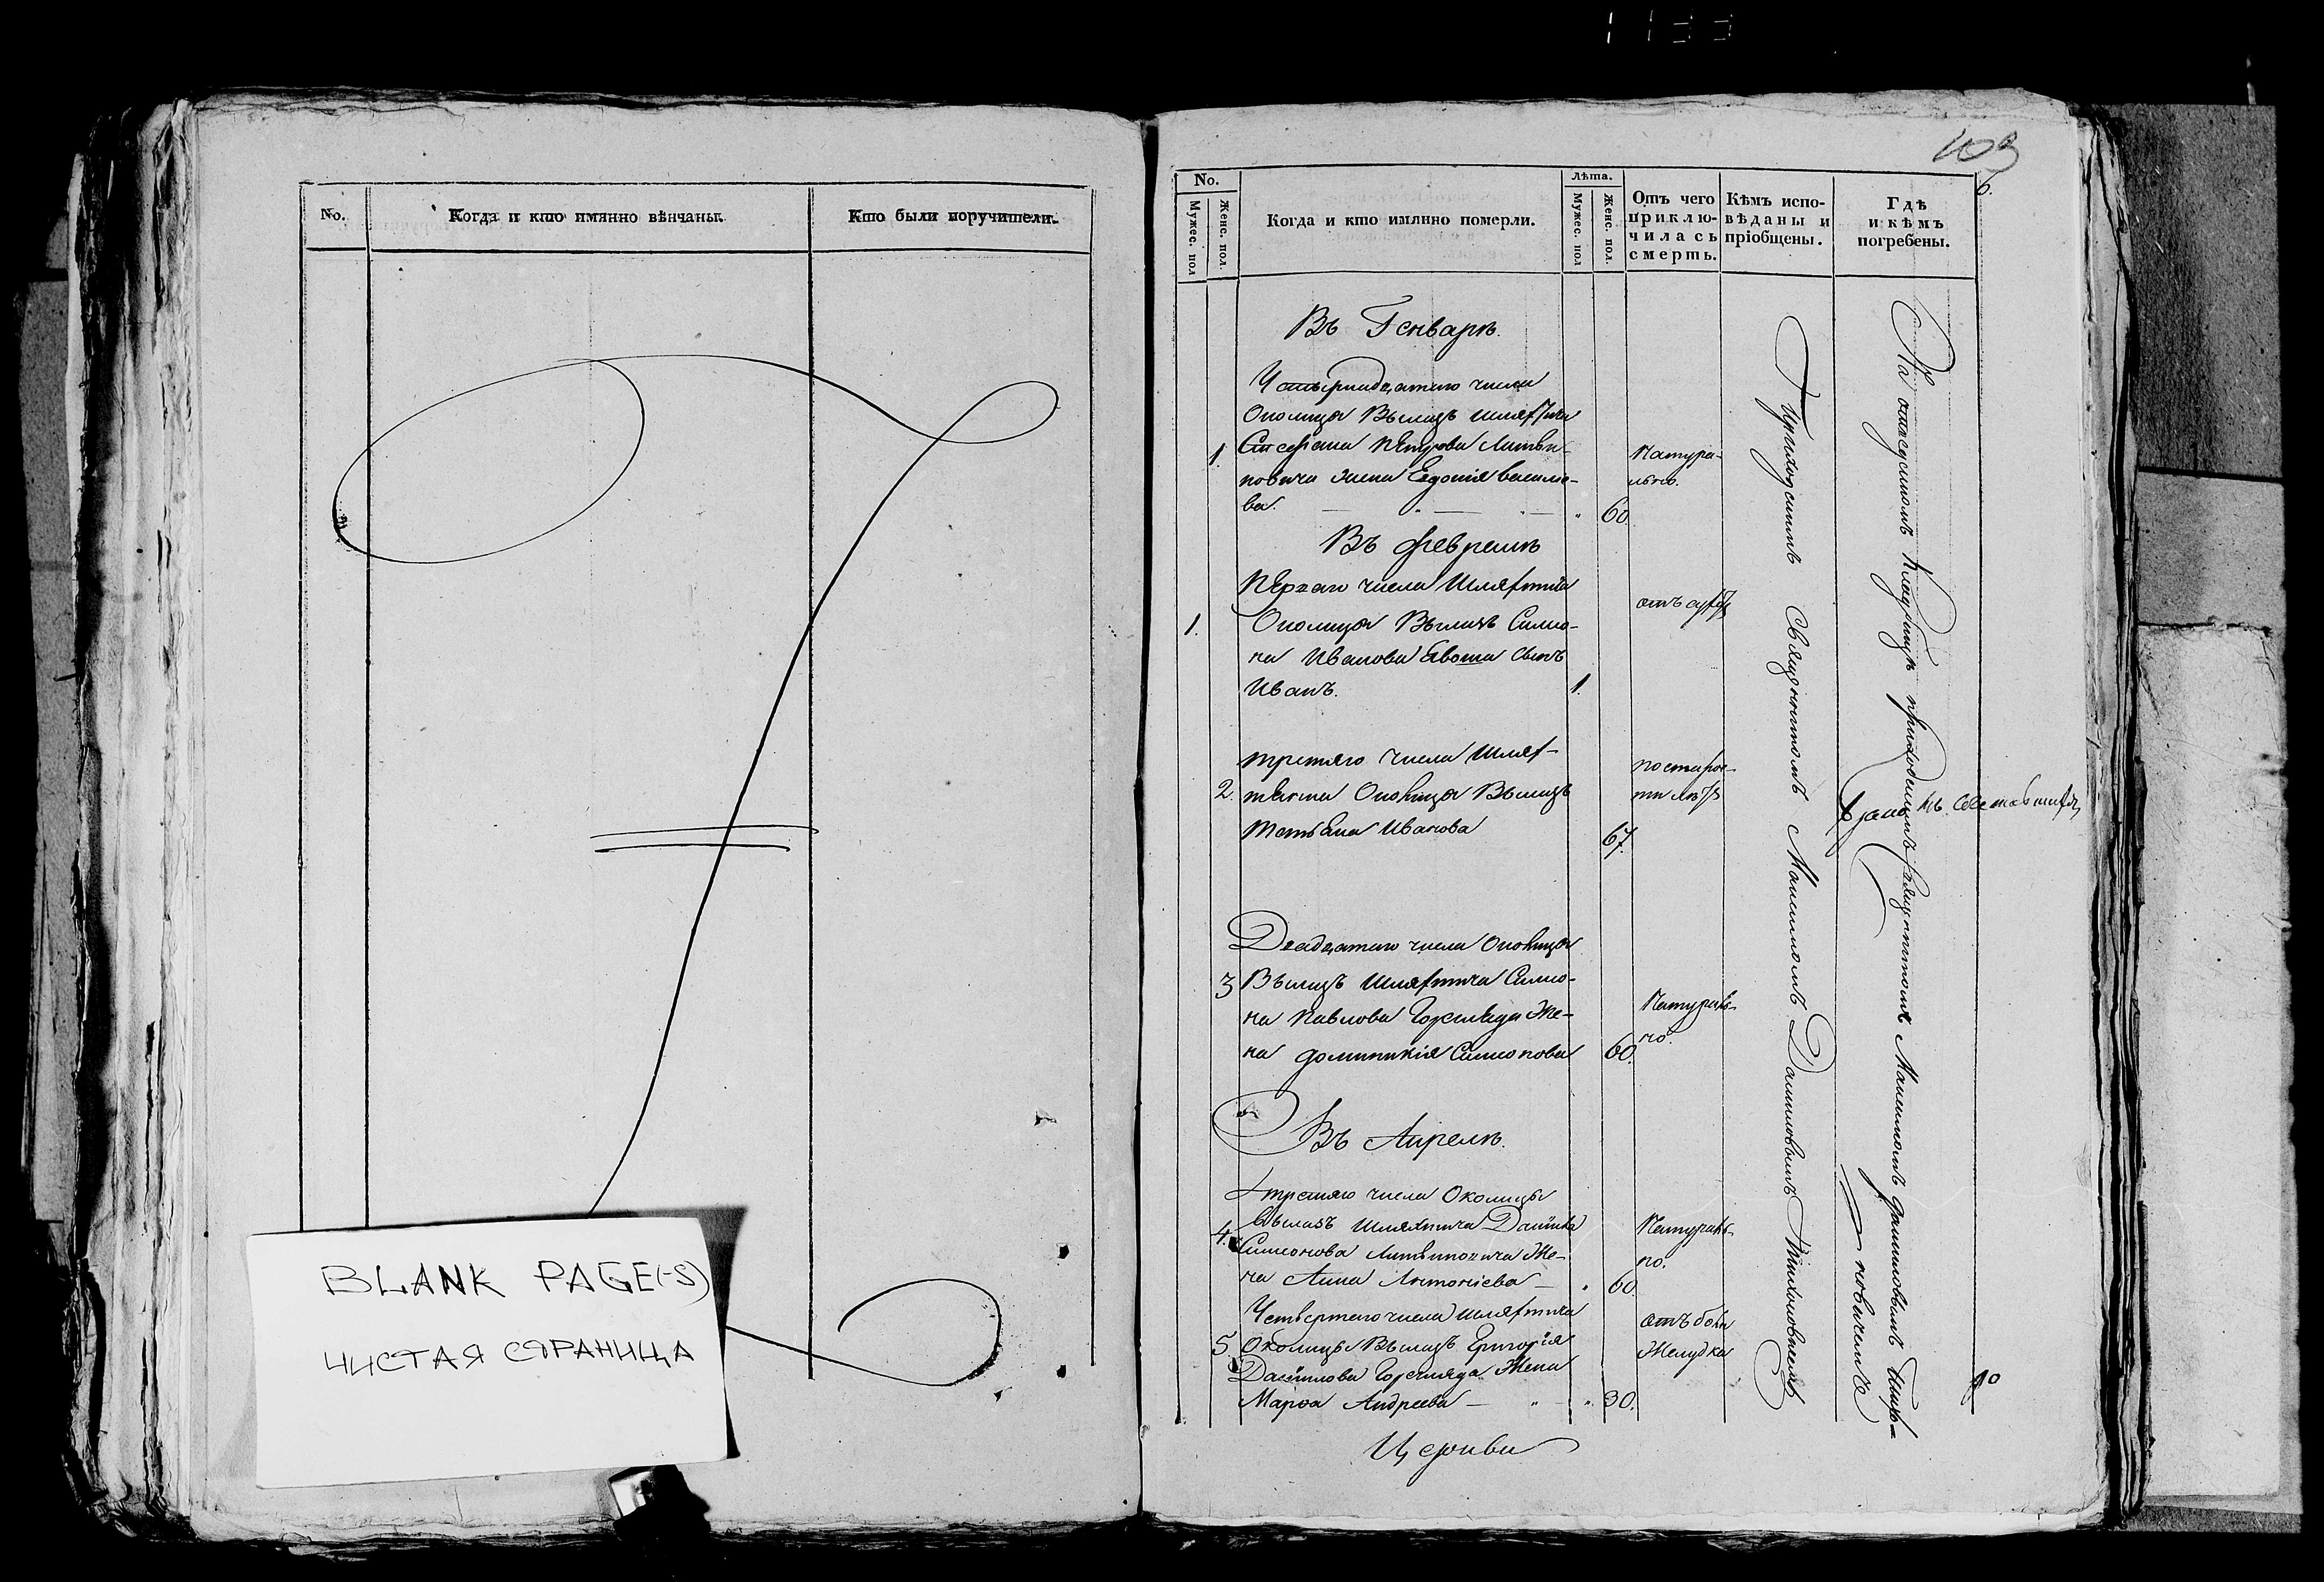 No.
Когда и кто имянно вѣнчаны.
Кто были поручители.
BLANK PAGE(-S)
ЧИСТАЯ СТРАНИЦА
403
6.
No.
Мужес. пол
Женс. пол.
Когда и кто имянно померли.
Лѣта.
Мужес. пол
Женс. пол.
Отъ чего
приклю-
чилась
смерть.
Кѣмъ испо-
вѣданы и
пріобщены.
Гдѣ
и кѣмъ
погребены.
Въ Генварѣ.
Четырнадцатаго числа
Околицы Вымазъ шляхтича
1. Петрова Литви-
новича жена Евдокія Василіе-
ва. 60.
Натура-
льно.
Въ Февралѣ
Перваго числа Шляхтича
1. Околицы Вымазъ Симо-
на Иванова сынъ
Иванъ. 1.
третяго числа Шлях-
2. тянка Околицы Вымазъ
Татьяна Иванова 67.
по старос-
ти лѣтъ
Двадцатаго числа Околицы
3 Вымазъ Шляхтича Симо-
на Павлова Же-
на Доминикія Симонова 60.
Натураль-
но.
Въ Апрелѣ.
третяго числа Околицы
4. Вымазъ Шляхтича Данила
Симонова Литвиновича Же-
на Анна Антоніева 60
Натураль-
но.
Четвертаго числа шляхтича
5 Околицы Вымазъ Григорія
Данилова Жена
Марѳа Андреева 30.
отъ боли
Желудка
Приходскимъ Священникомъ Максимомъ Данииловымъ Тихоновичемъ
На кладбищѣ приходскимъ Священникомъ Максимомъ Данииловымъ Тихо-
новичемъ
10
Церкви